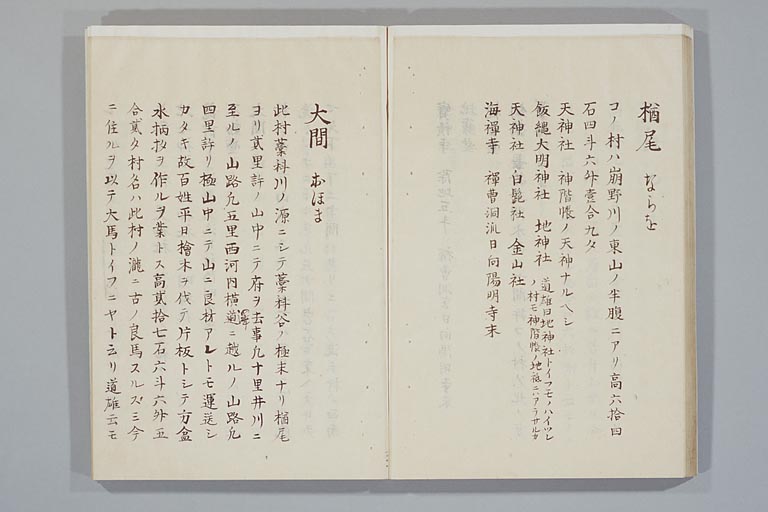 楢尾 ならを
コノ村ハ崩野川ノ東山ノ半腹ニアリ高六拾四
石四斗六升壹合九夕
天神社 神階帳ノ天神ナルヘシ
飯縄大明神社 地神社 道雄曰地神社トイフモノハイツレ
ノ村モ神階帳ノ地祇ニハアラサルカ
天神社 白髭社 金山社
海禪寺 禪曹洞派日向陽明寺末
大間 おほま
此村藁科川ノ源ニシテ藁科谷ノ極末ナリ楢尾
ヨリ貳里許ノ山中ニテ府ヲ去事凡十里井川ニ
至ルノ山路凡五里西河内横澤ニ越ルノ山路凡
四里許リ極山中ニテ山ニ良材アレトモ運送シ
カタキ故百姓平日檜木ヲ伐テ片板トシテ方盆
水柄杓ヲ作ルヲ業トス高貳拾七石六斗六升五
合貳夕村名ハ此村ノ瀧ニ古ノ良馬スルスミ今
ニ住ルヲ以テ大馬トイフニヤト云リ道雄云モ